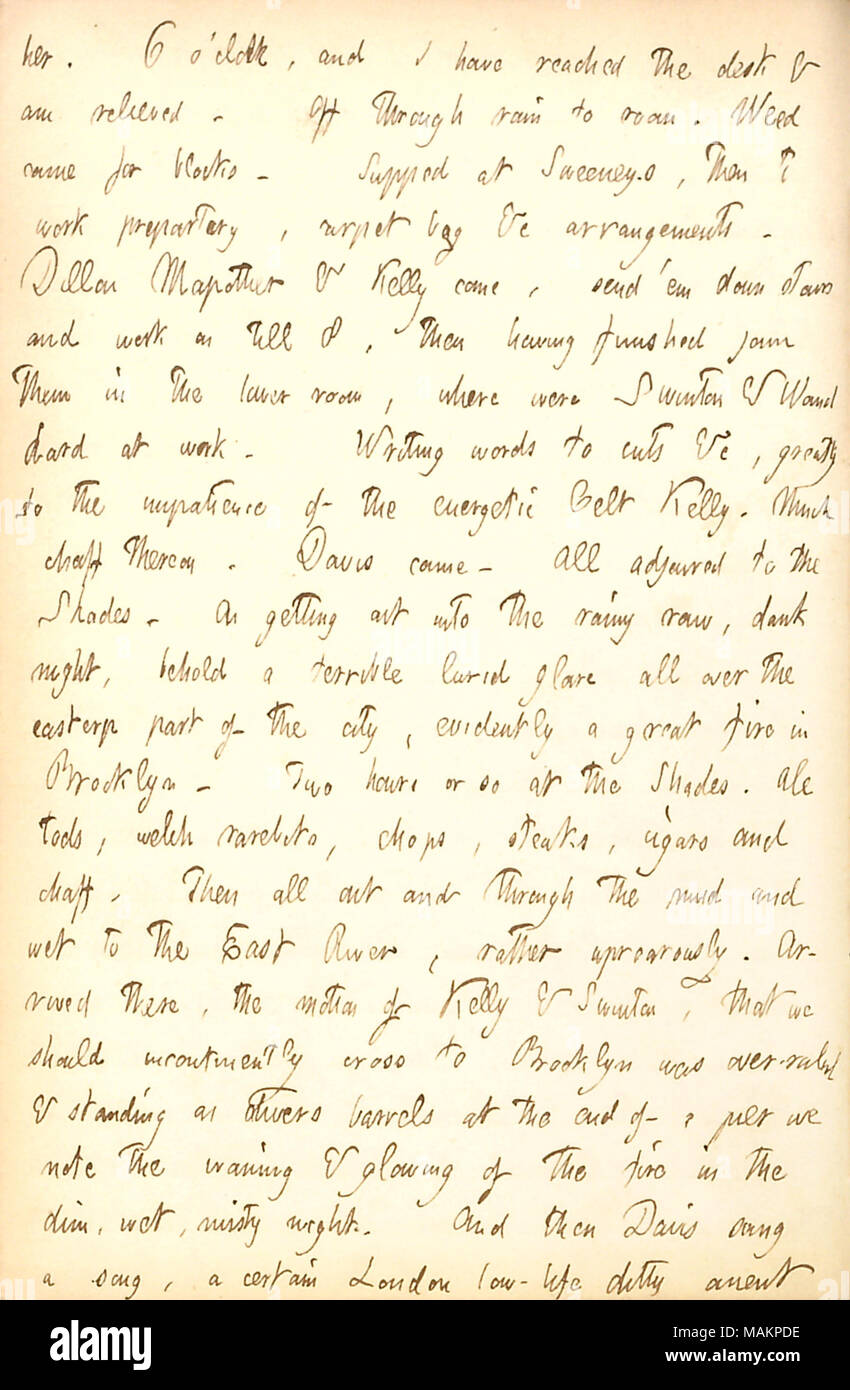 her. 6 o'clock, and I have reached the desk &
am relieved - Off through rain to room. Weed
came for blocks - Supped at Sweeney.s, then to
work prepartory, carpet bag &c arrangements -
Dillon Mapother & Kelly come, send 'em down stairs
and work on till 8, then having finished join
them in the lower room, where were Swinton & Wand
hard at work - Writing words to cuts &c, greatly
to the impatience of the energetic Celt Kelly. Much
chaff thereon. Davis came - All adjourned to the
Shades. On getting out into the rainy raw, dank
night, behold a terrible lurid glare all over the
eastern part of the city, evidently a great fire in
Brooklyn - Two hours or so at the Shades. Ale
tods, welch rarebits, chops, steaks, cigars and
chaff. Then all out and through the mud and
wet to the East River, rather uproarously. Ar-
rived there, the motion of Kelly & Swinton, that we
should incontinently cross to Brooklyn was over-ruled
& standing on divers barrels at the end of a pier we
note the waning & glowing of the fire in the
dim, wet, misty night. And then Davis sang
a song, a certain London low-life ditty anent
alamy
Image ID: MAKPDE
www.alamy.com